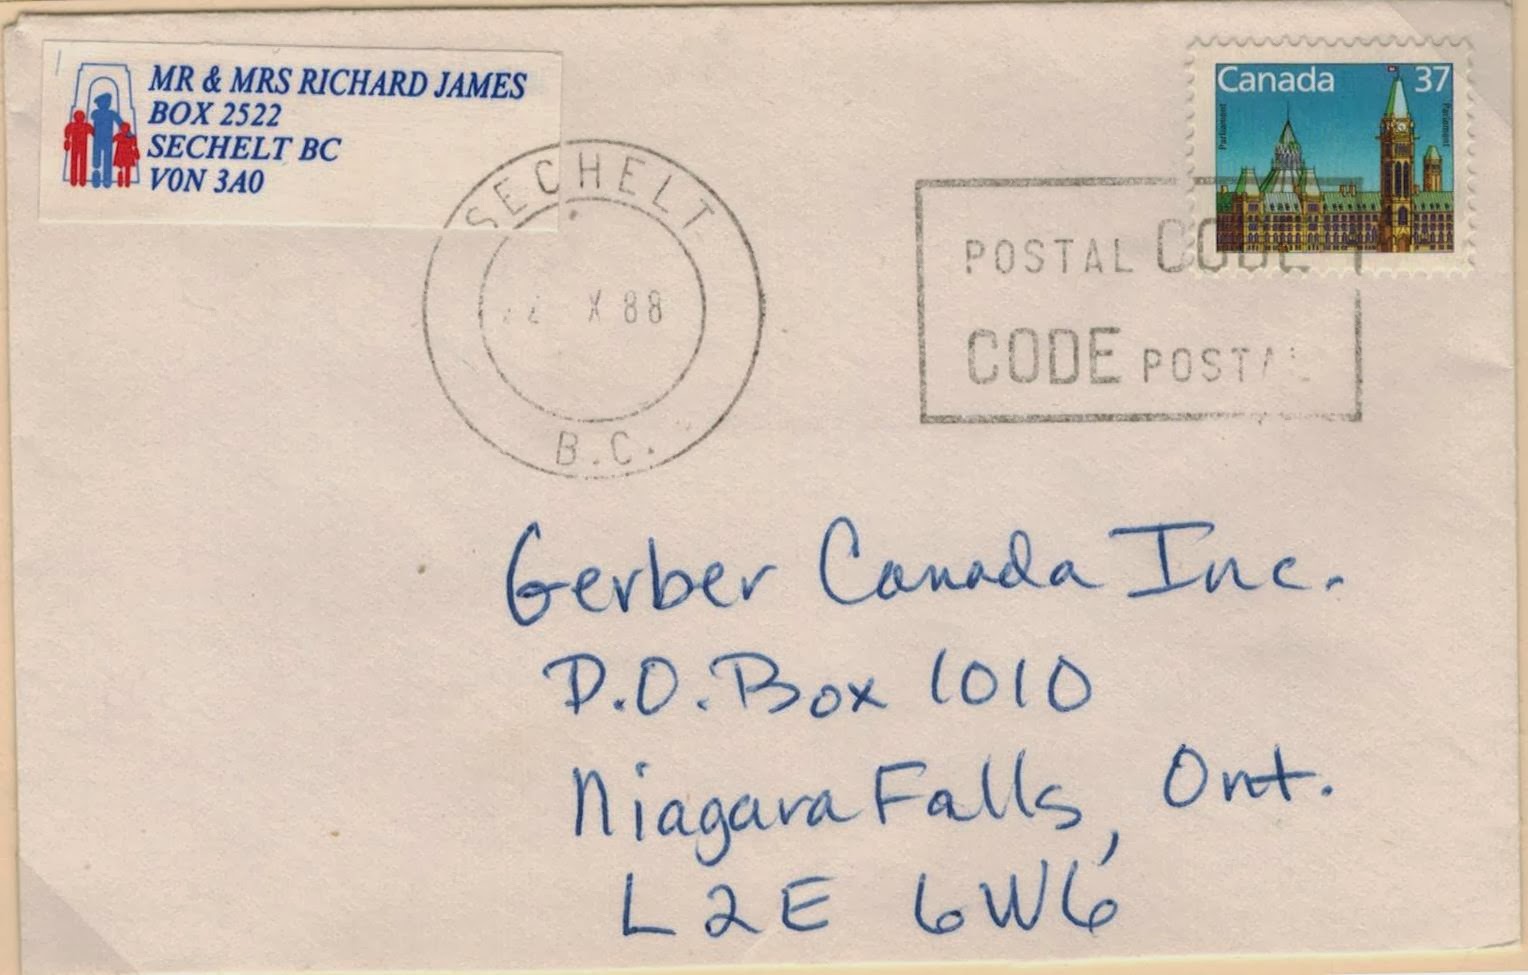 MR & MRS RICHARD JAMES
BOX 2522
SECHELT BC
V0N 3A0
SECHELT
X 88
B.C.
POSTAL CODE
CODE POSTAL
Canada 37
Parliament
Parlement
Gerber Canada Inc.
P.O. Box 1010
Niagara Falls, Ont.
L2E 6W6